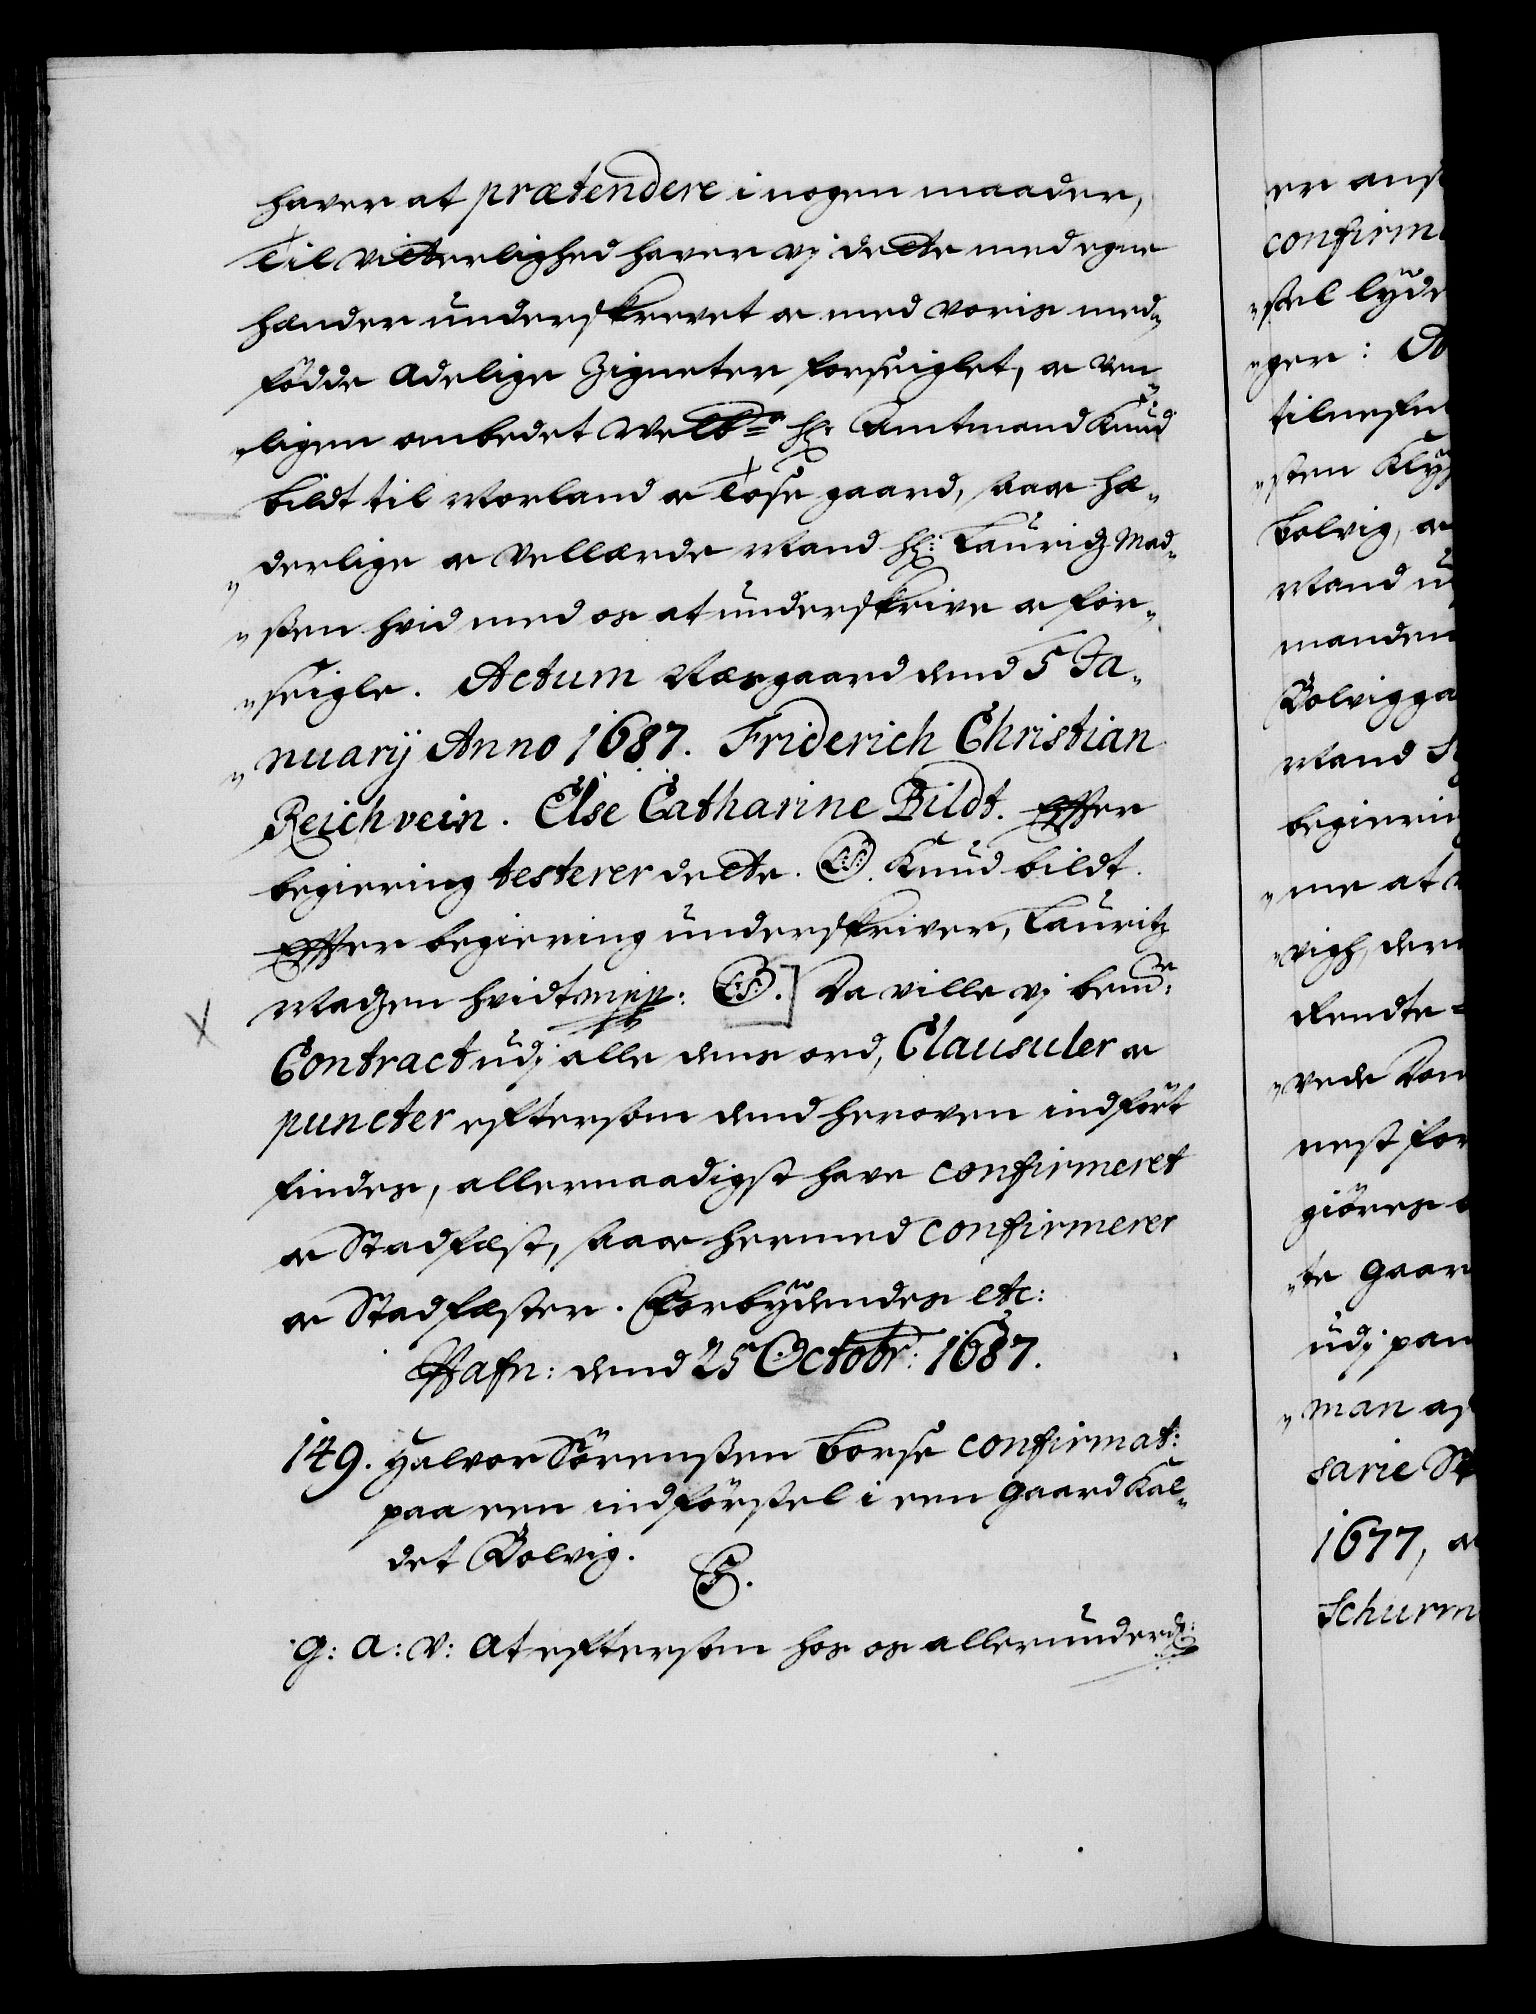 haver at prætendere i nogen maader,
Til vitterlighed haver vj dette med egne
hænder underskrevet oc med voris med„
födde Adelige Zigneter forseiglet, oc ven„
„ligen ombedet Welb: Hr: Amtmand Knud
bildt til Morland oc Tose gaard, saa oc hæ„
„derlige oc Vellærde Mand Hr: Lauridz Mad„
„sen hvid med os at underskrive oc for„
„seigle. Actum Næsgaard dend 5 Ja„
„nuarij Anno 1687. Friderich Christian
Reichvein. Else Catharine Bildt. Effter
begiering testerer dette. L.S. Knud bildt.
Effter begiering underskriver, Lauritz
Madzen hvidt mpp: L.S.] Da ville vj bemte:
Contract udj alle dens ord, Clausuler oc
puncter eftersom dend heroven indfört
findes, allernaadigst have confirmeret
oc Stadfæst, saa oc hermed confirmerer
oc Stadfæster. Forbydendes etc:
Hafn: dend 25 Octobr: 1687.
149. Halvor Sörensen Borse confirmat:
paa een indförsel i een gaard kal„
det Bolvig.
C5.
G: A: V: At eftersom hos os allerunderd:
er ans
confirm
„sel lyde
„ger:
tilnefn
„sten Kly
Bolvig, oc
Mand u
manden
Bolvigga
Mand S
begierin
„me at
„vigh, der
Rendte=
„vede Dom
nest for
giöres
„te gaar
udj pan
„man af
sarie St
1677, oc
Schurm